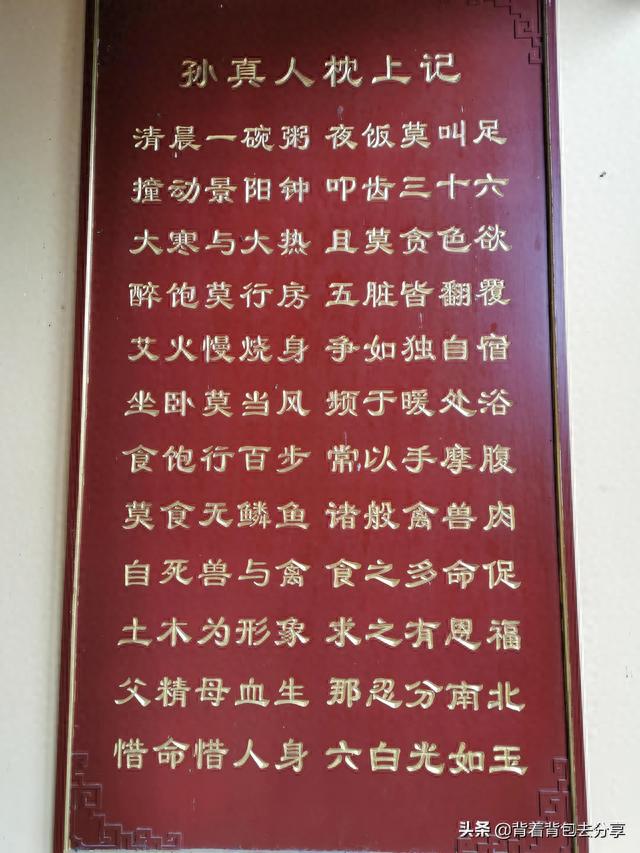 孙真人枕上记
清晨一碗粥 夜饭莫叫足
撞动景阳钟 叩齿三十六
大寒与大热 且莫贪色欲
醉饱莫行房 五脏皆翻覆
艾火慢烧身 争如独自宿
坐卧莫当风 频于暖处浴
食饱行百步 常以手摩腹
莫食无鳞鱼 诸般禽兽肉
自死兽与禽 食之多命促
土木为形象 求之有恩福
父精母血生 那忍分南北
惜命惜人身 六白光如玉
头条 @背着背包去分享